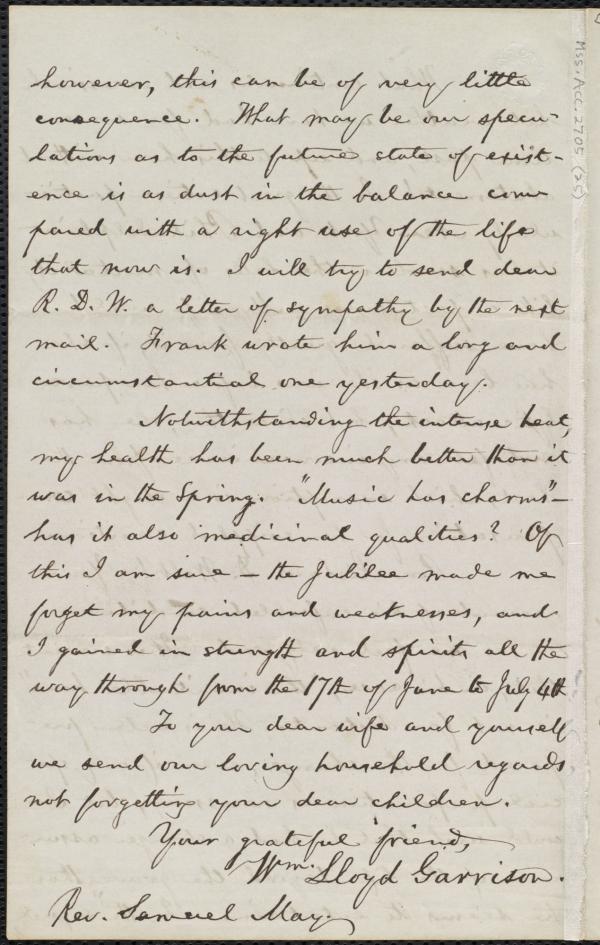 however, this can be of very little
consequence. What may be our specu-
lations as to the future state of exist-
ence is as dust in the balance com-
pared with a right use of the life
that now is. I will try to send dear
R. D. W. a letter of sympathy by the next
mail. Frank wrote him a long and
circumstantial one yesterday.
Notwithstanding the intense heat,
my health has been much better than it
was in the Spring. "Music has charms"—
has it also medicinal qualities? Of
this I am sure — the Jubilee made me
forget my pains and weaknesses, and
I gained in strength and spirits all the
way through from the 17th of June to July 4th
To your dear wife and yourself
we send our loving household regards
not forgetting your dear children.
Your grateful friend,
Wm. Lloyd Garrison.
Rev. Samuel May.
Mss. Acc. 2705 (35)